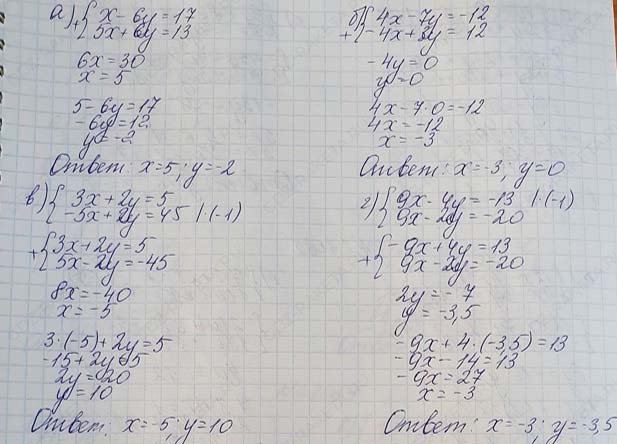 а) + { x - 6y = 17
5x + 6y = 13
6x = 30
x = 5
5 - 6y = 17
-6y = 12
y = -2
Ответ: x=5; y=-2
б) + { 4x - 7y = -12
-4x + 3y = 12
-4y = 0
y = 0
4x - 7·0 = -12
4x = -12
x = -3
Ответ: x=-3; y=0
в) { 3x + 2y = 5
-5x + 2y = 45 | ·(-1)
+ { 3x + 2y = 5
5x - 2y = -45
8x = -40
x = -5
3·(-5) + 2y = 5
-15 + 2y = 5
2y = 20
y = 10
Ответ: x=-5; y=10
г) { 9x - 4y = -13 | ·(-1)
9x - 2y = -20
+ { -9x + 4y = 13
9x - 2y = -20
2y = -7
y = -3,5
-9x + 4·(-3,5) = 13
-9x - 14 = 13
-9x = 27
x = -3
Ответ: x=-3; y=-3,5